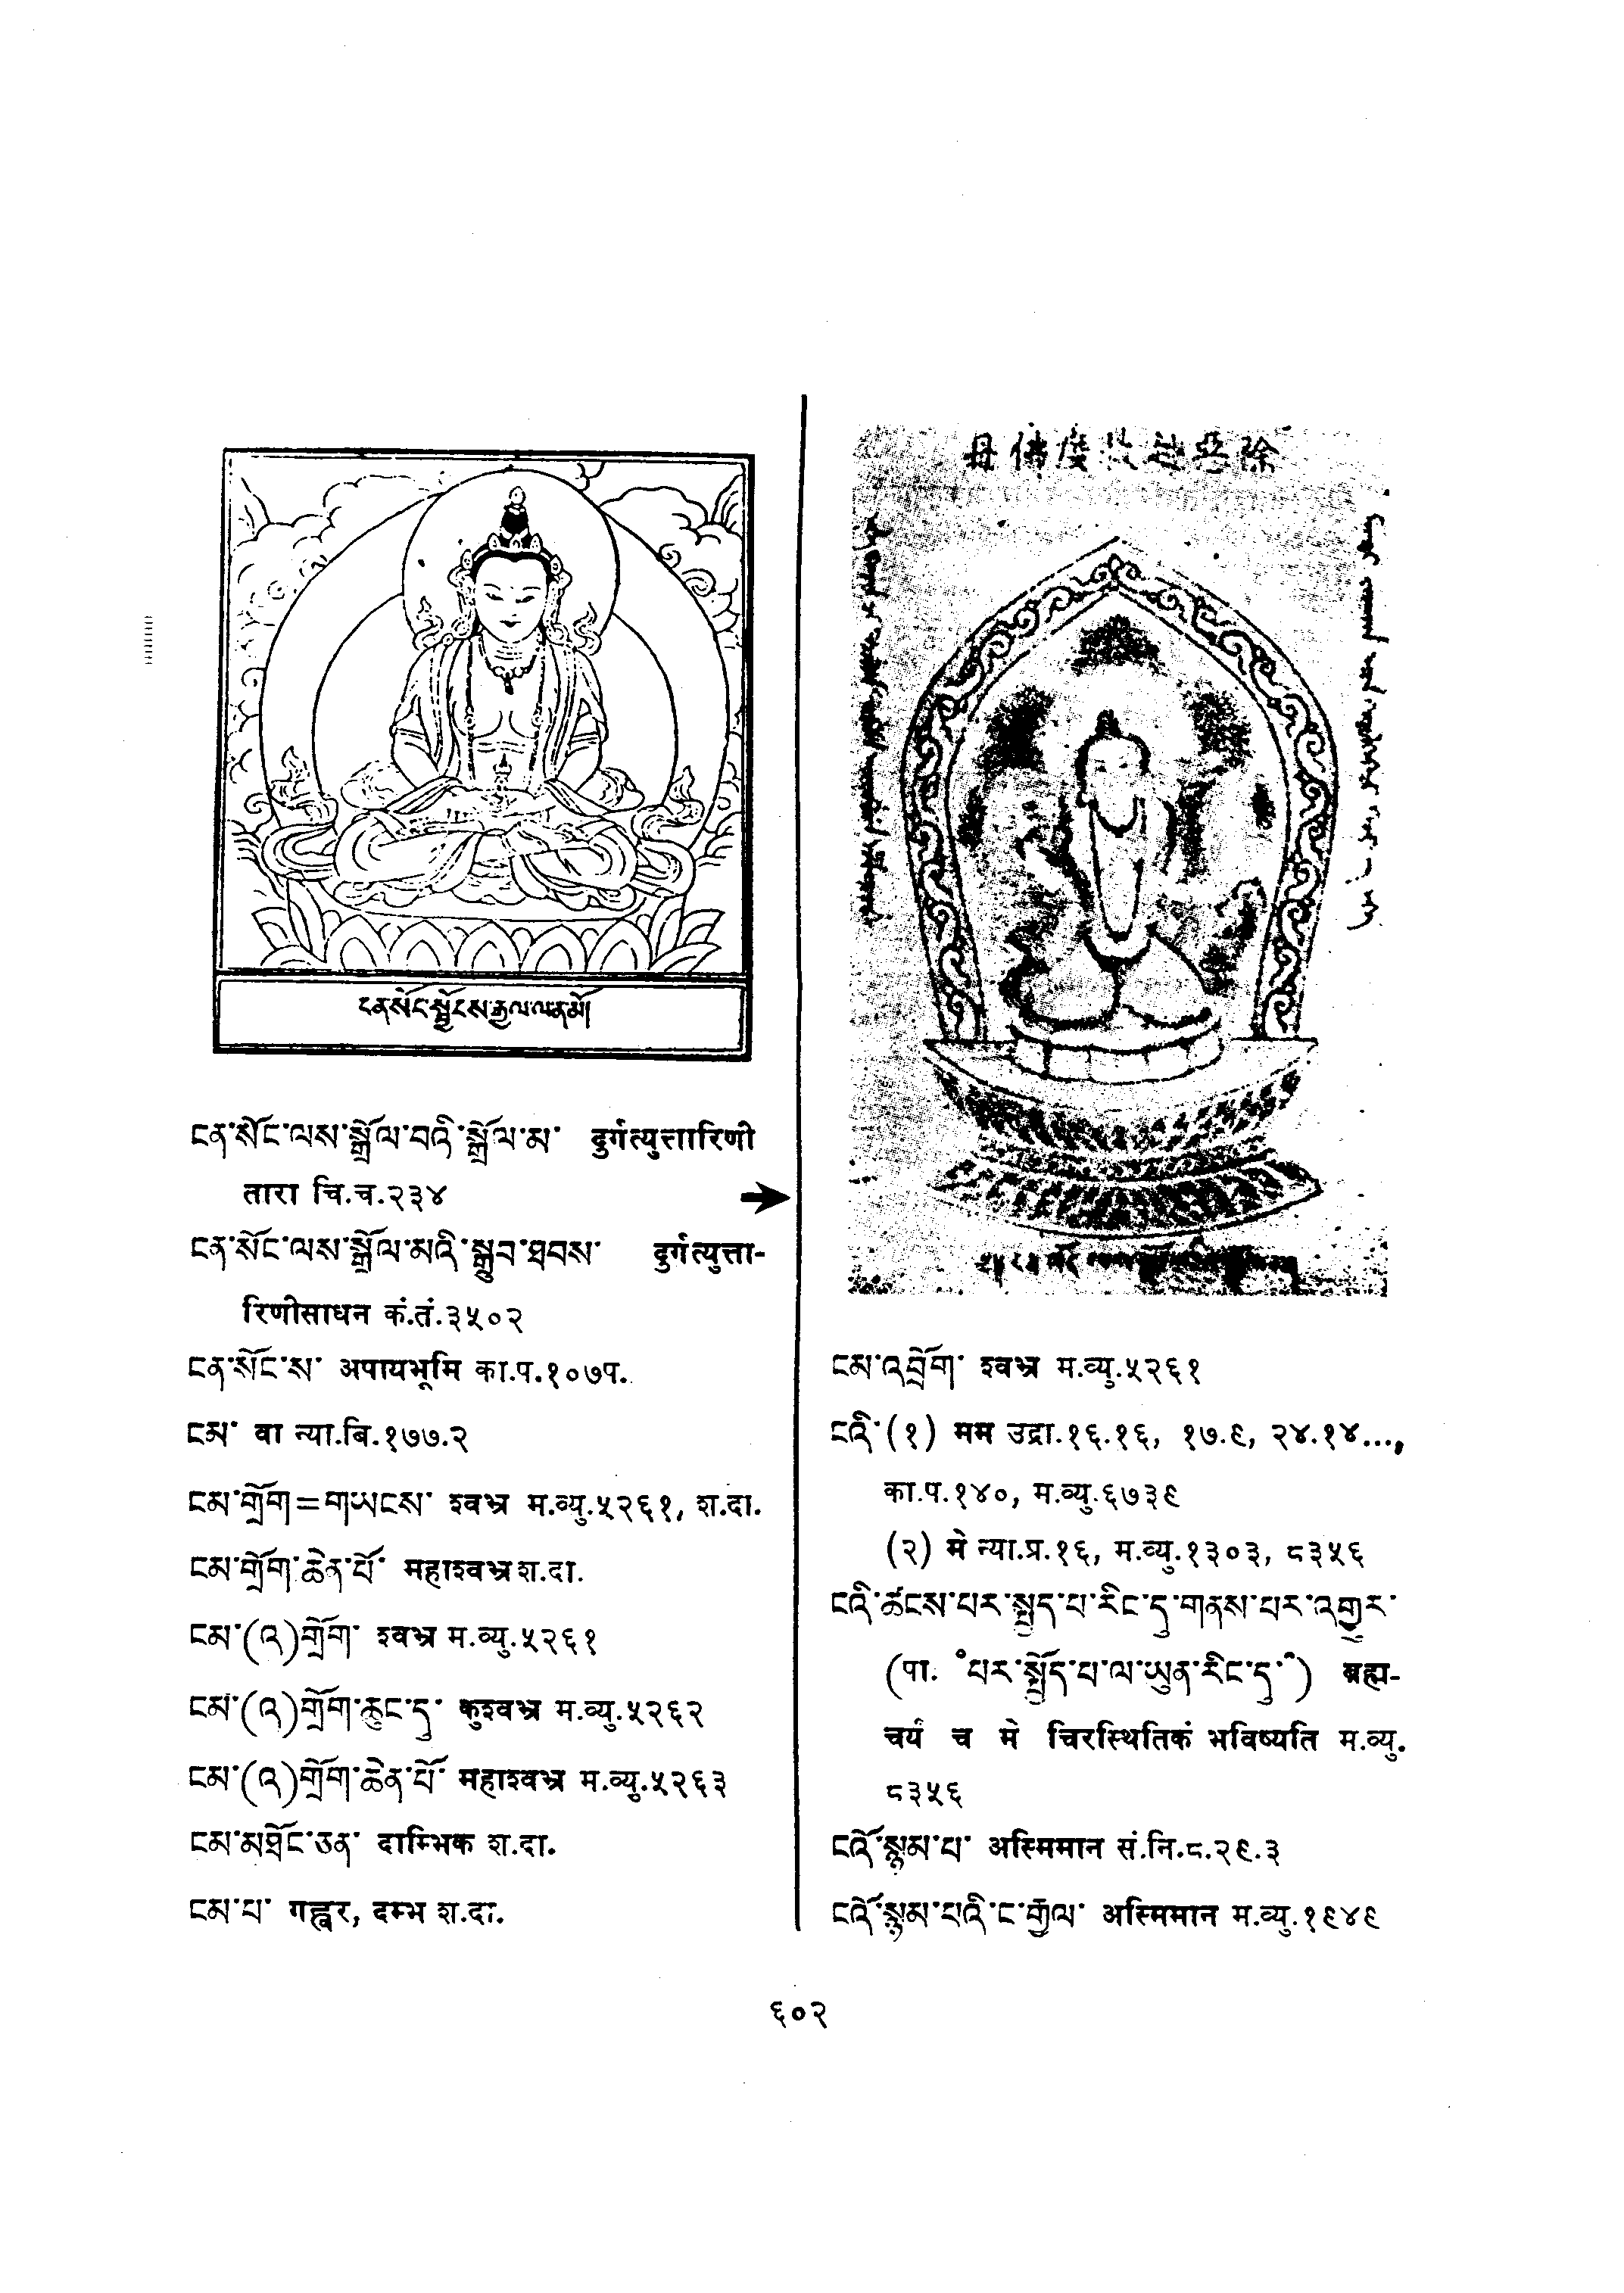 ངན་སོང་སྦྱོངས་རྒྱལ་ལ་ན་མོ།
ངན་སོང་ལས་སྒྲོལ་བའི་སྒྲོལ་མ་ दुर्गत्युत्तारिणी
तारा चि.च.२३४
ངན་སོང་ལས་སྒྲོལ་མའི་སྒྲུབ་ཐབས་ दुर्गत्युत्ता-
रिणीसाधन कं.तं.३५०२
ངན་སོང་ས་ अपायभूमि का.प.१०७प.
ངམ་ वा न्या.बि.१७७.२
ངམ་གྲོག=གཡངས་ श्वभ्र म.व्यु.५२६१, श.दा.
ངམ་གྲོག་ཆེན་པོ་ महाश्वभ्र श.दा.
ངམ་(འ)གྲོག་ श्वभ्र म.व्यु.५२६१
ངམ་(འ)གྲོག་ཆུང་དུ་ कुश्वभ्र म.व्यु.५२६२
ངམ་(འ)གྲོག་ཆེན་པོ་ महाश्वभ्र म.व्यु.५२६३
ངམ་མཐོང་ཅན་ दाम्भिक श.दा.
ངམ་པ་ गह्वर, दम्भ श.दा.
ངམ་འབྲོག་ श्वभ्र म.व्यु.५२६१
ངའི་(१) मम उद्रा.१६.१६, १७.९, २४.१४...,
का.प.१४०, म.व्यु.६७३९
(२) मे न्या.प्र.१६, म.व्यु.१३०३, ८३५६
ངའི་ཚངས་པར་སྤྱད་པ་རིང་དུ་གནས་པར་འགྱུར་
(पा. ॰པར་སྤྱོད་པ་ལ་ཡུན་རིང་དུ་॰) ब्रह्म-
चर्यं च मे चिरस्थितिकं भविष्यति म.व्यु.
८३५६
ངའོ་སྙམ་པ་ अस्मिमान सं.नि.८.२९.३
ངའོ་སྙམ་པའི་ང་རྒྱལ་ अस्मिमान म.व्यु.१९४९
६०२